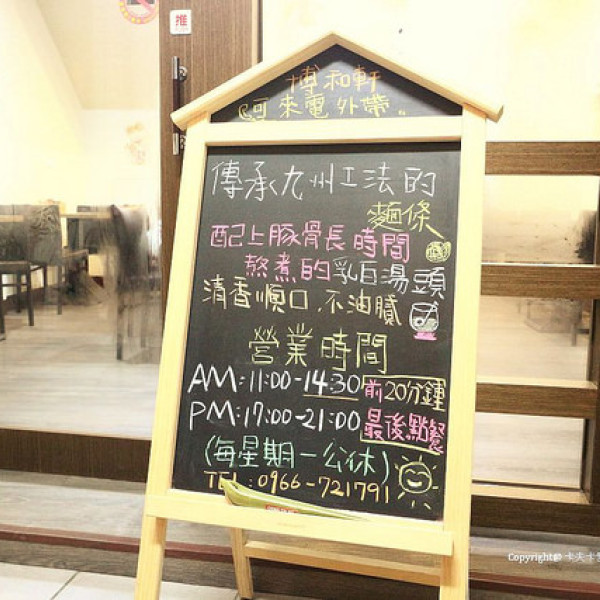 推
博和軒
可來電外帶。
傳承九州工法的
麵條
配上豚骨長時間
熬煮的乳白湯頭
清香順口、不油膩
營業時間
AM:11:00-14:30 前20分鐘
PM:17:00-21:00 最後點餐
(每星期一公休)
TEL:0966-721791
Copyright@ 卡夫卡